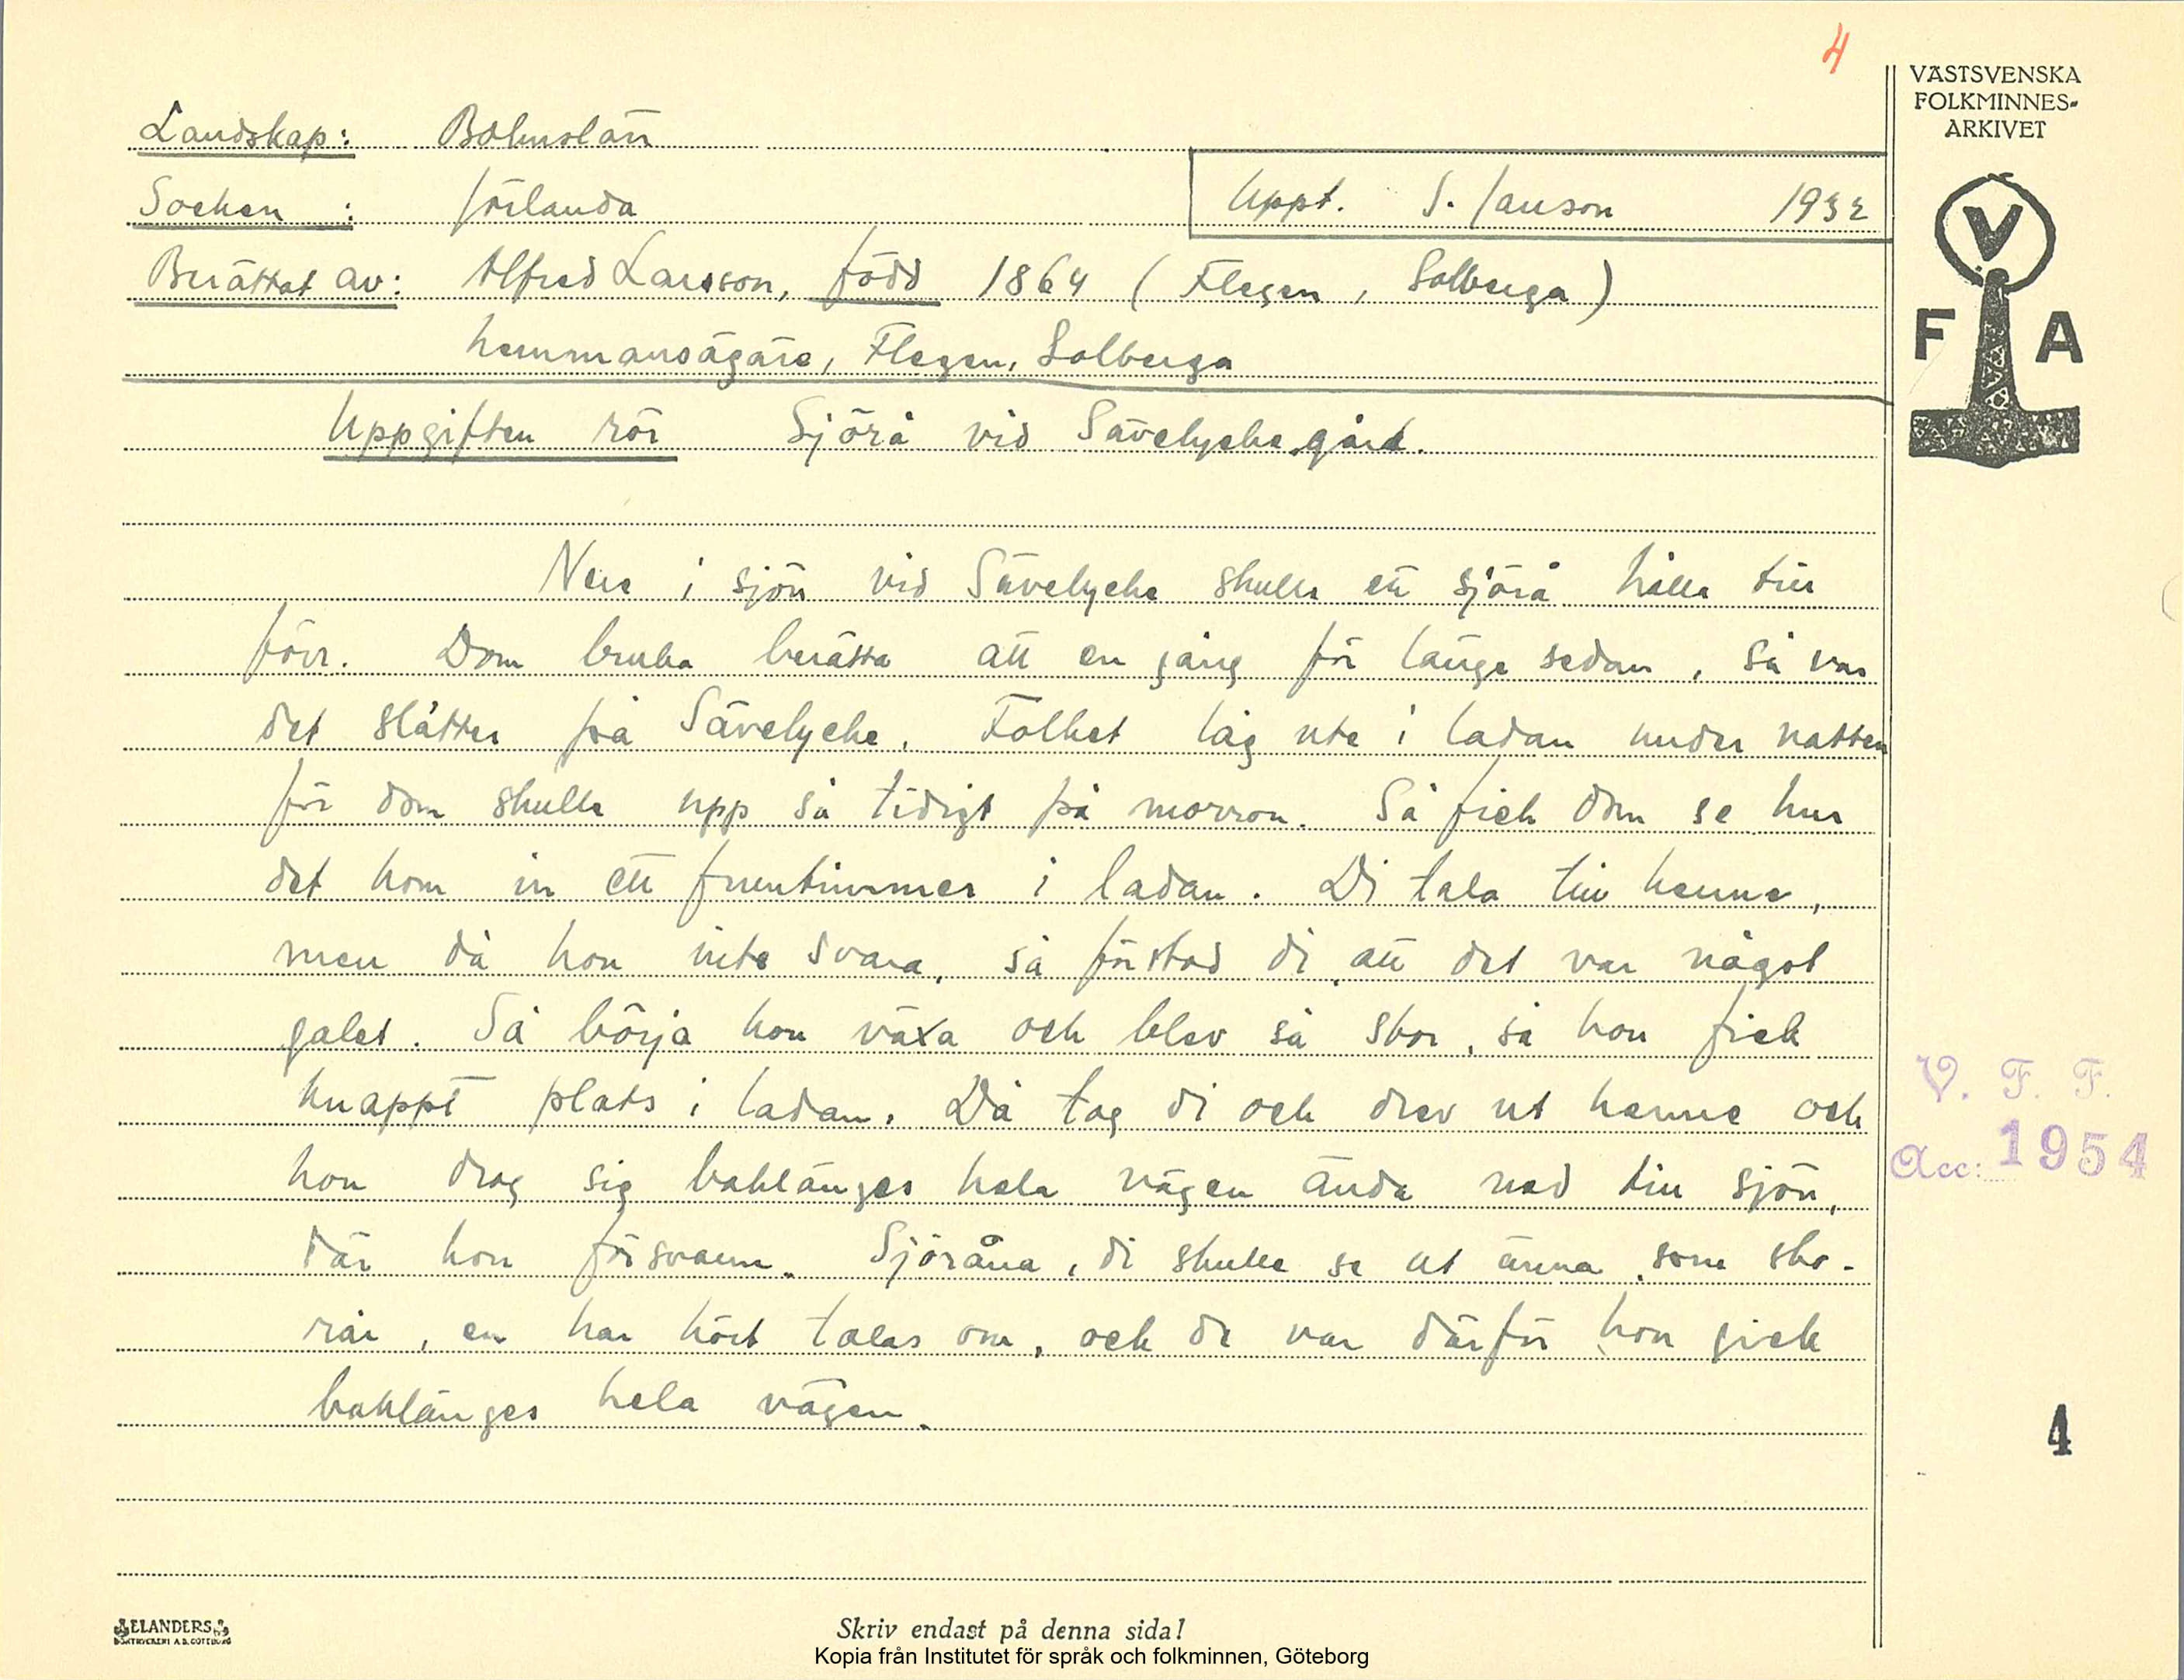 4
VÄSTSVENSKA
FOLKMINNES-
ARKIVET
Landskap: Bohuslän
Socken : Jörlanda
Uppt. S. Janson 1932
Berättat av: Alfred Larsson, född 1864 (Flegen, Solberga)
hemmansägare, Flegen, Solberga
V
F A
Uppgiften rör Sjörå vid Sävelycke gård.
Nere i sjön vid Sävelycke skulle ett sjörå hålla till
förr. Dom bruka berätta att en gång för länge sedan, så var
det slåtter på Sävelycke. Folket låg ute i ladan under natten
för dom skulle upp så tidigt på morron. Så fick dom se hur
det kom in ett fruentimmer i ladan. Di tala till henne,
men då hon inte svara, så förstod di att det var något
galet. Så börja hon växa och blev så stor, så hon fick
knappt plats i ladan. Då tog di och drev ut henne och
hon drog sig baklänges hela vägen ända ned till sjön,
där hon försvann. Sjöråna, di skulle se ut änna som sko-
rår, en har hört talas om, och de var därför hon gick
baklänges hela vägen.
V. F. F.
Acc: 1954
4
ELANDERS
BOKTRYCKERI A.B. GÖTEBORG
Skriv endast på denna sida!
Kopia från Institutet för språk och folkminnen, Göteborg